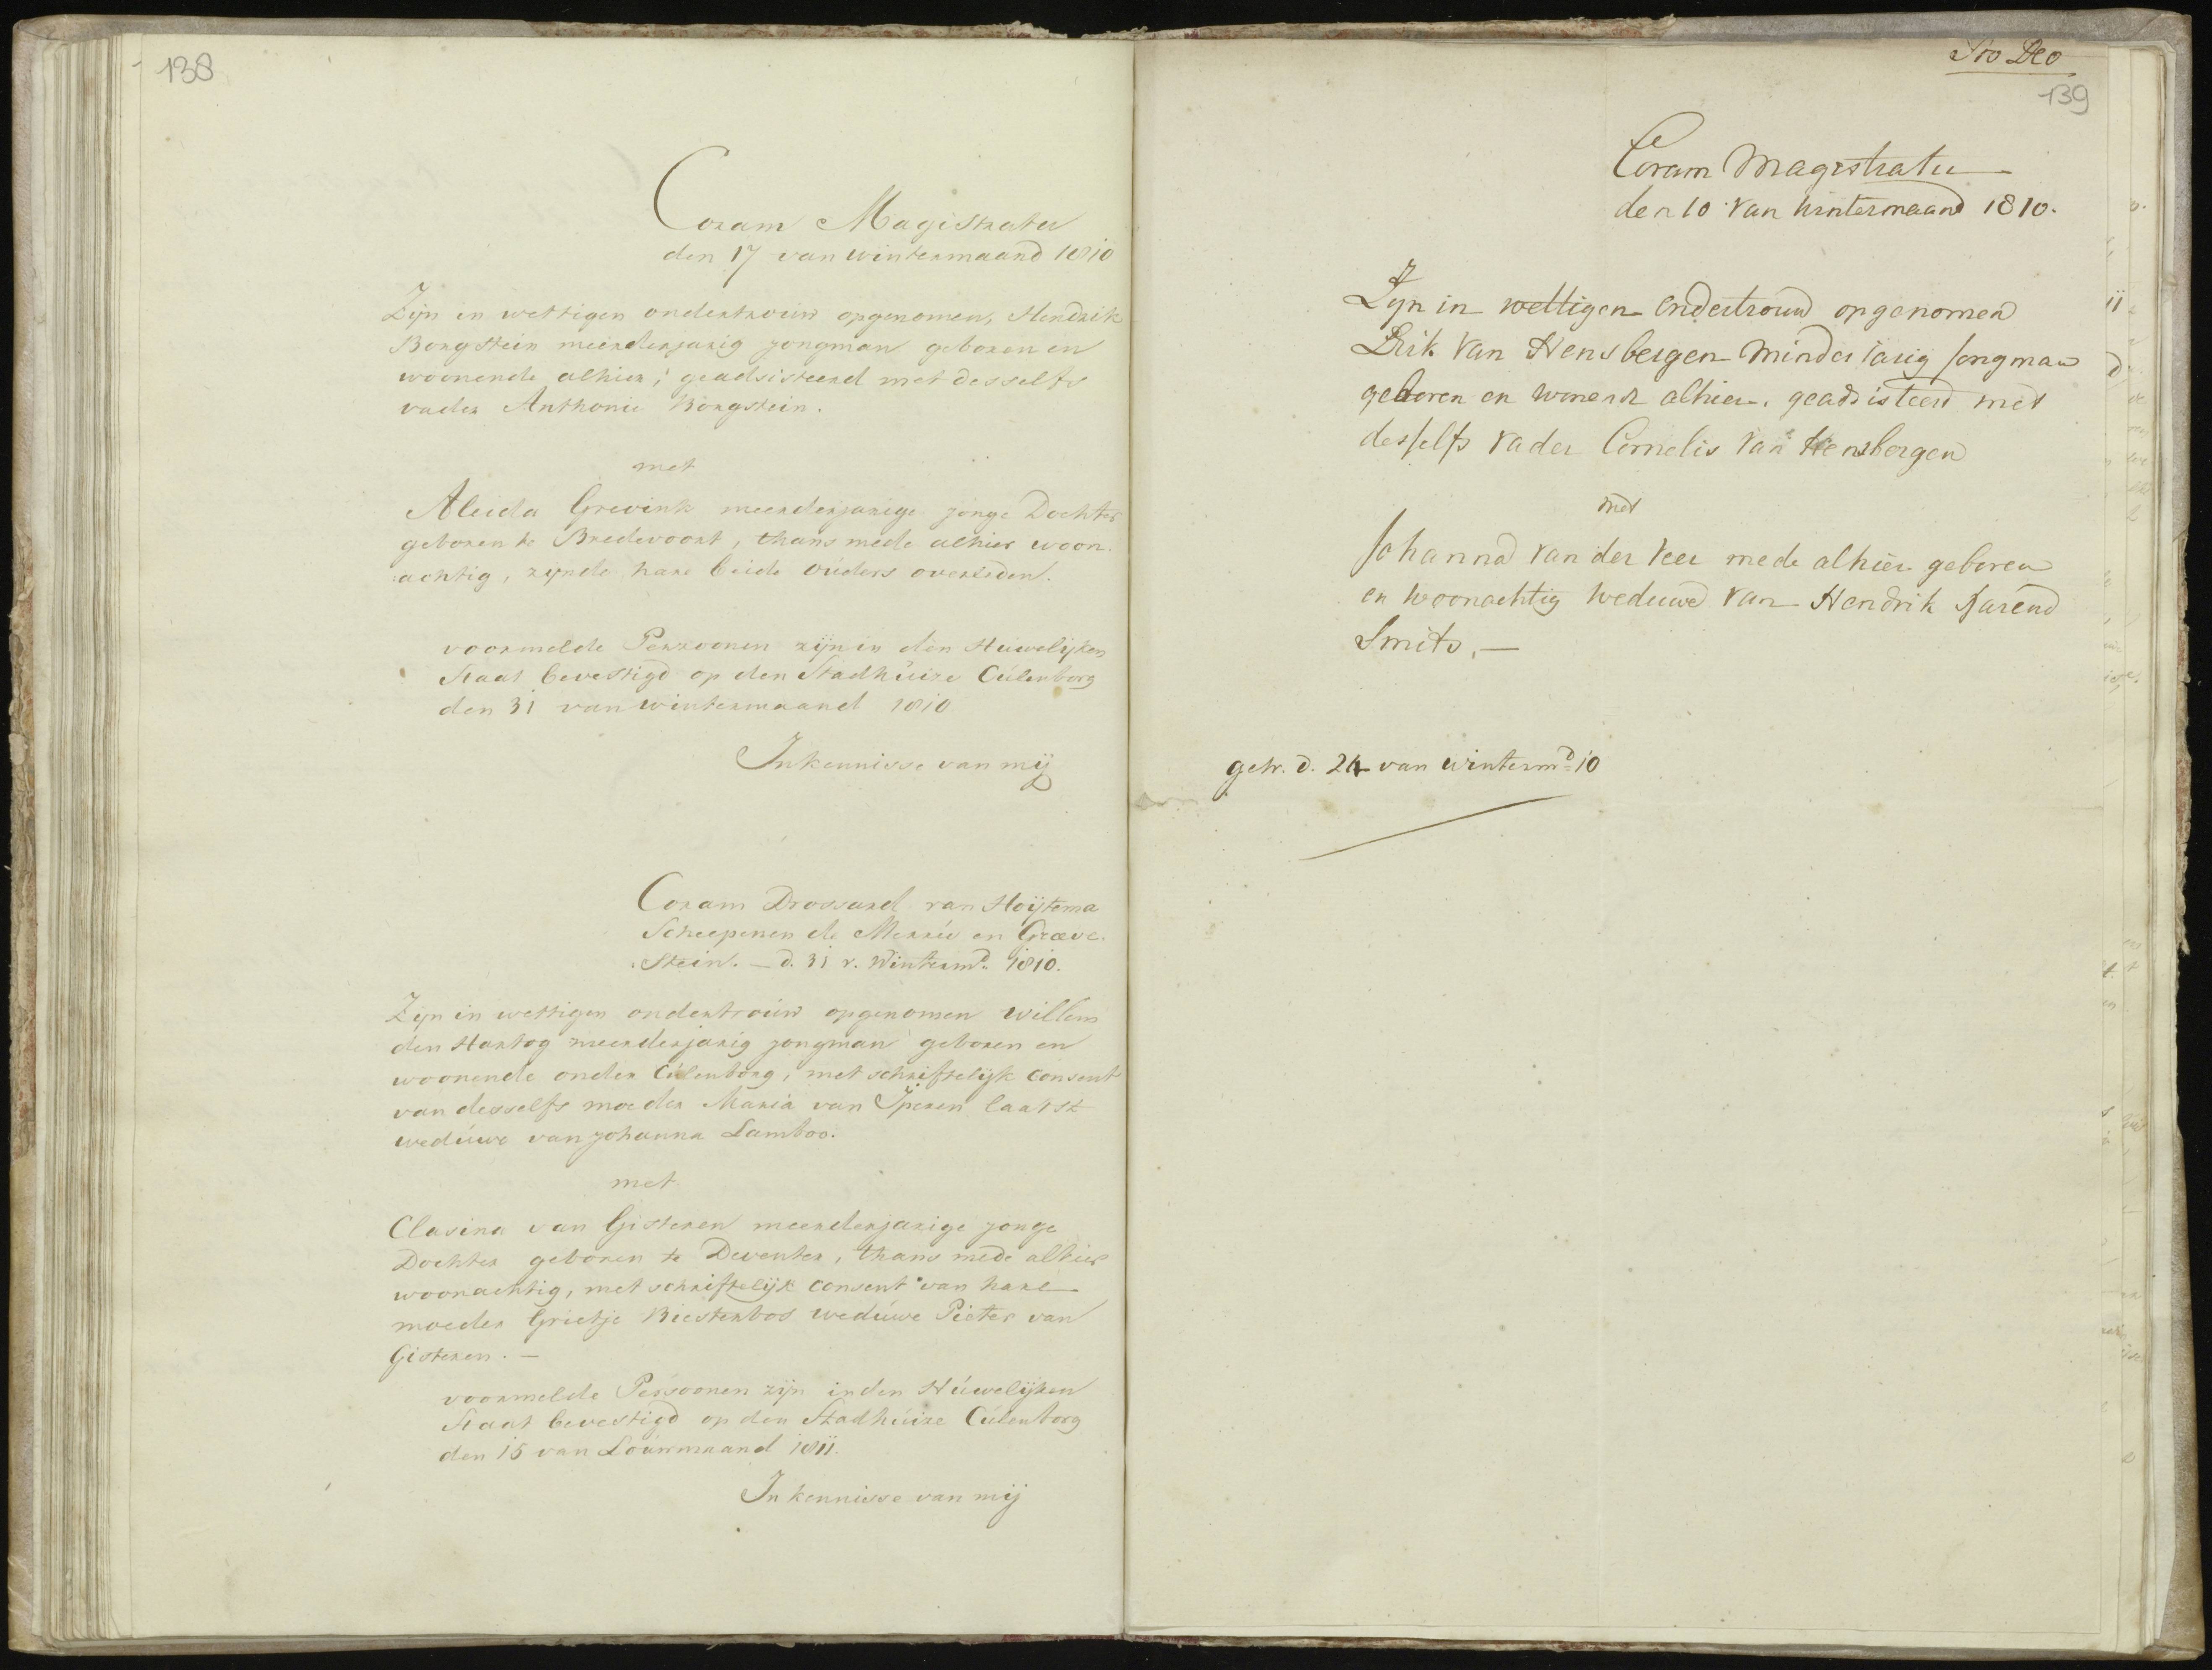 138
Coram Magistratu
den 17 van wintermaand 1810
Zijn in wettigen ondertrouw opgenomen, Hendrik
Borgstein meerderjarig jongman geboren en
woonende alhier; geadsisteerd met desselfs
vader Anthonie Borgstein.
met
Aleida Grevink meerderjarige jonge Dochter
geboren te Bredevoort, thans mede alhier woon
achtig, zijnde hare beide ouders overleden.
voormelde Perzoonen zijn in den Huwelijken
Staat bevestigd op den Stadhuize Culenborg
den 31 van wintermaand 1810
In kennisse van mij
Coram Drossard van Hoijtema
Scheepenen de Merriv en Greve
Stein. — d. 31 v. Wintermd. 1810.
Zijn in wettigen ondertrouw opgenomen willem
den Hartog meerderjarig jongman geboren en
woonende onder Culenborg, met schriftelijk consent
van desselfs moeder Maria van Iperen laatst
weduwe van Johanna Lamboo.
met
Clasina van Gisteren meerderjarige jonge
Dochter geboren te Deventer, thans mede alhier
woonachtig, met schriftelijk consent van hare
moeder Grietje Biesterbos weduwe Pieter van
Gisteren. —
voormelde Persoonen zijn in den Huwelijken
Staat bevestigd op den Stadhuize Culenborg
den 15 van Louwmaand 1811.
In kennisse van mij
Pro Deo
139
Coram Magistratu
den 10 van Wintermaand 1810.
Zyn in wettigen ondertrouw opgenomen
Dirk van Hensbergen minderjarig Jongman
geboren en wonende alhier. geadsisteerd met
desselfs vader Cornelis van Hensbergen
met
Johanna van der Veer mede alhier geboren
en woonachtig weduwe van Hendrik Barend
Smits. —
getr. d. 24 van wintermd 10